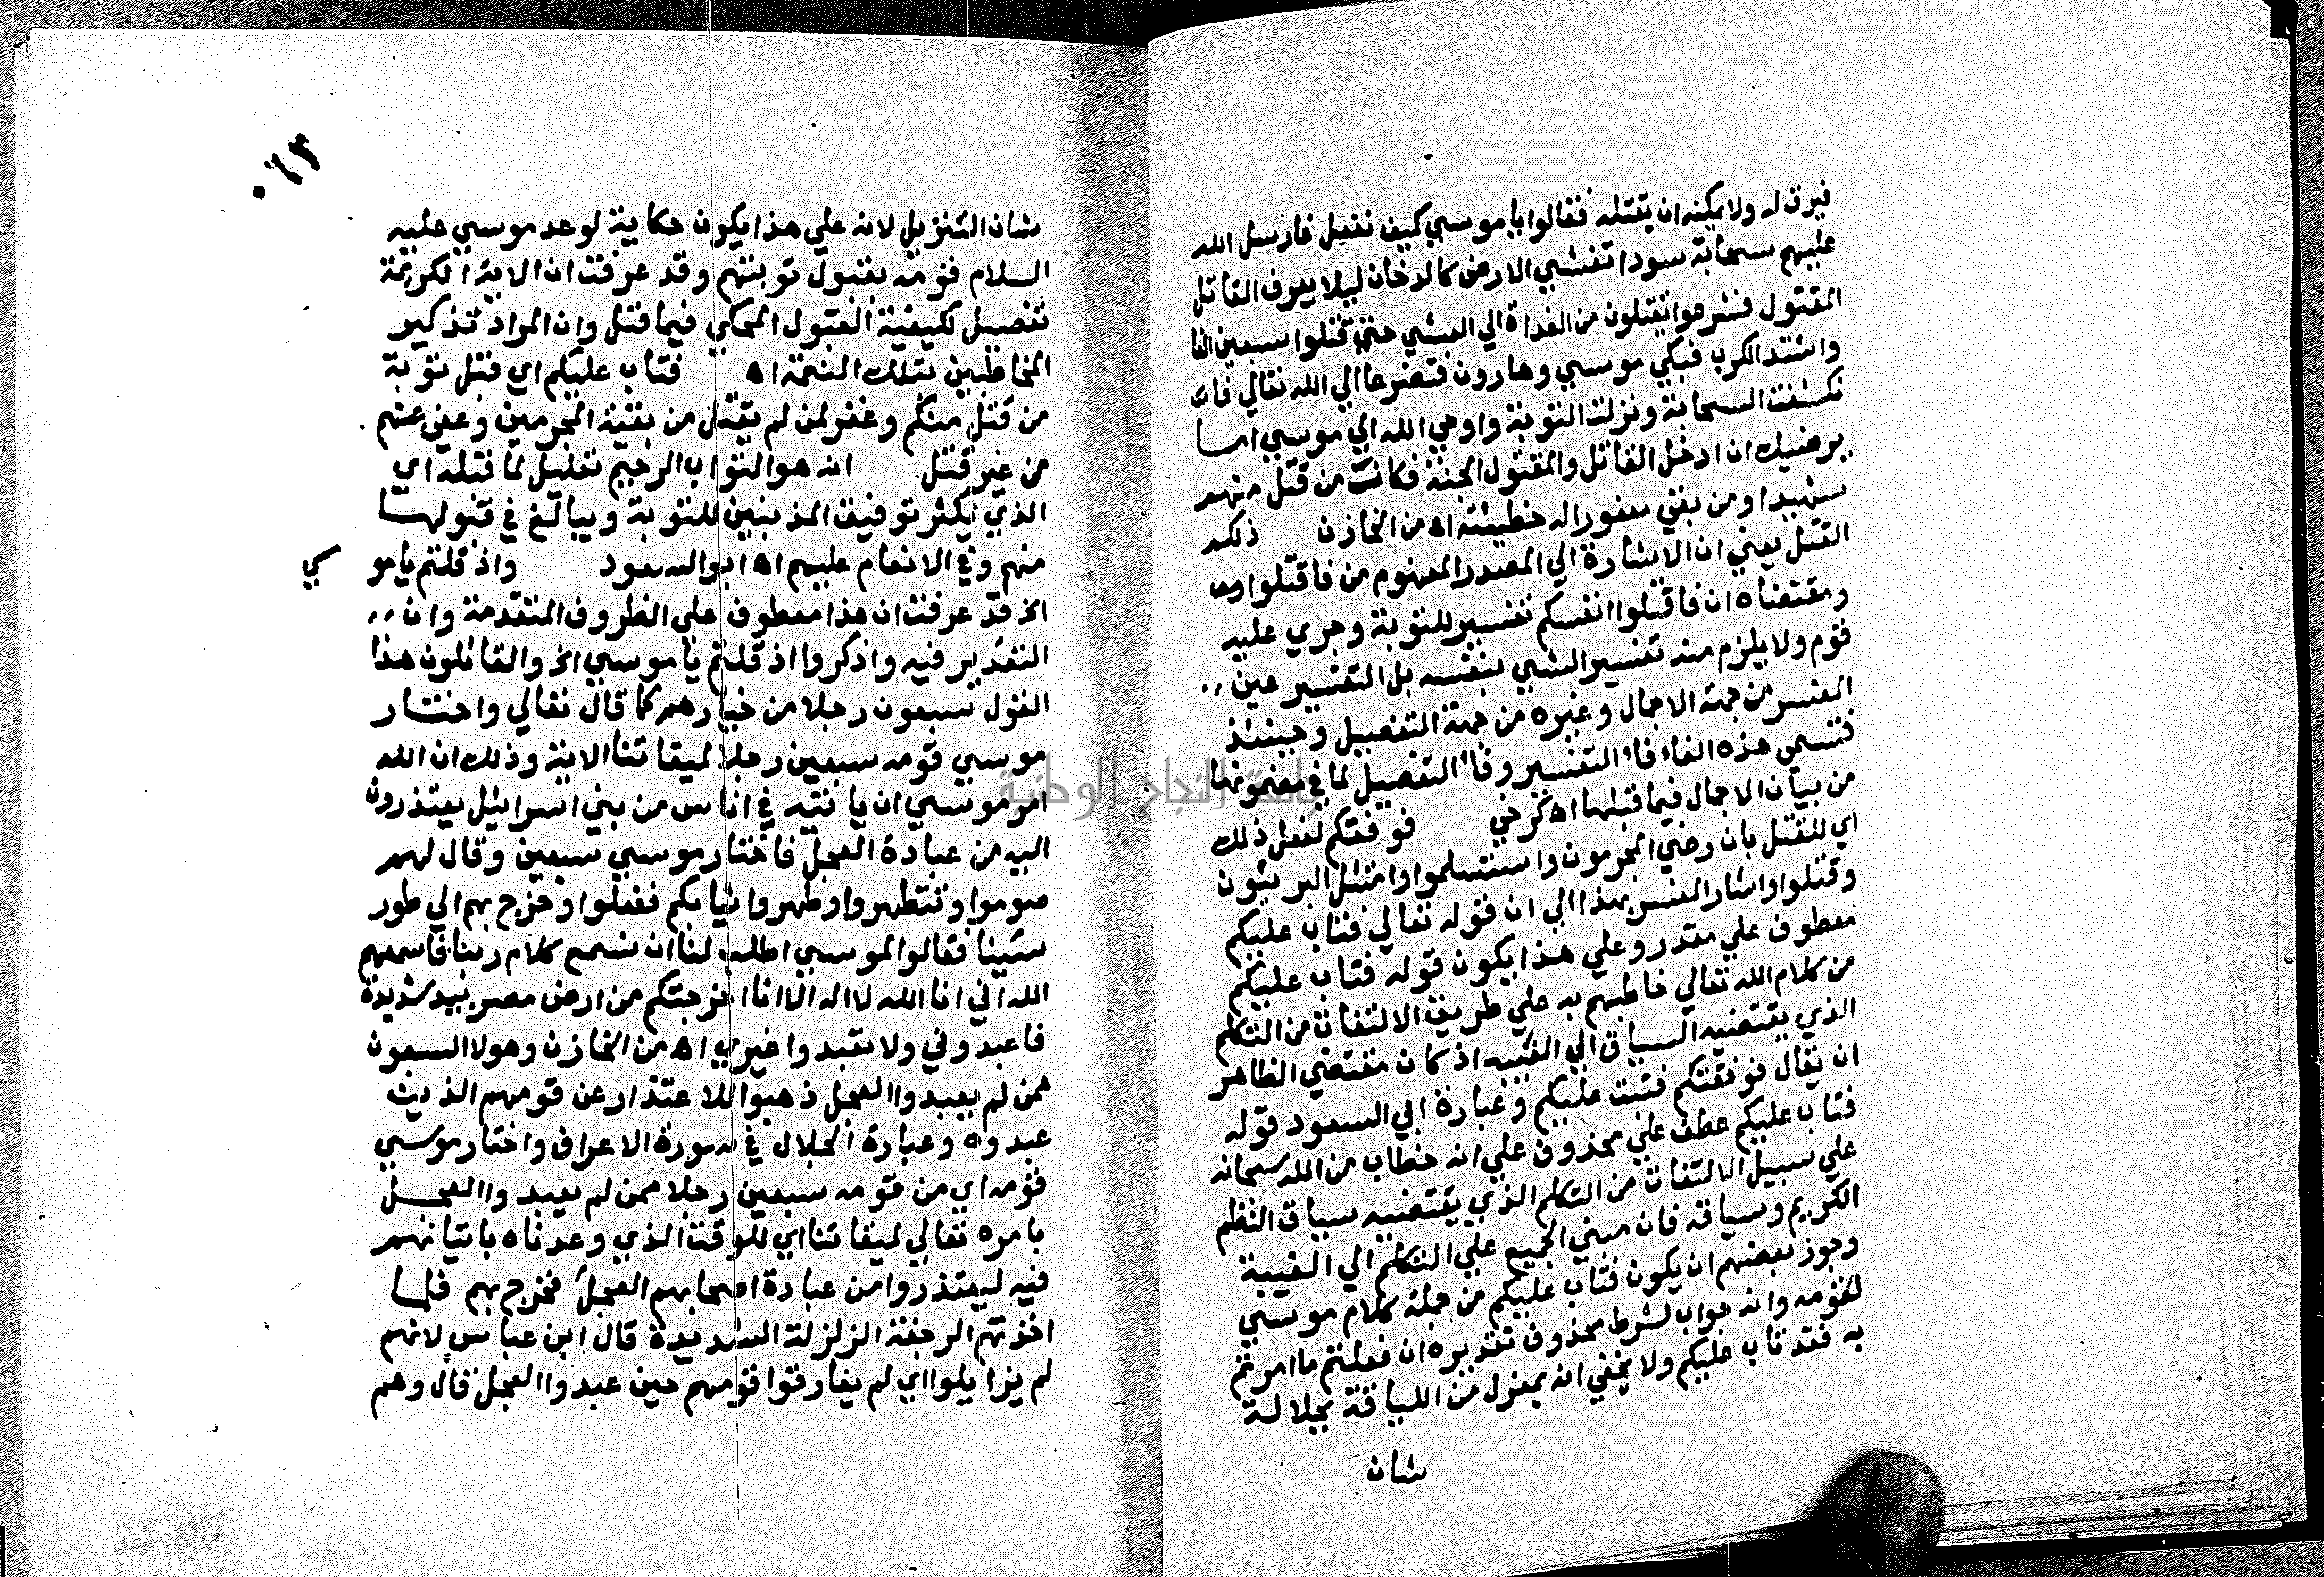 فيرق له ولا يمكنه ان يقتله فقالوا يا موسي كيف نفعل فارسل الله
عليهم سحابة سودا تغشي الارض كالدخان ليلا يعرف القاتل
المقتول فشرعوا يقتلون من الغداة الي العشي حتي قتلوا سبعين الفا
واشتد الكرب فبكي موسي وهارون فتضرعا الي الله تعالي فان
نكشفت السحابة ونزلت التوبة واوحي الله الي موسي اما
يرضيك ان ادخل القاتل والمقتول الجنة فكان من قتل منهم
شهيدا ومن بقي مغفورا له خطيئته اه من الخازن ذلكم
القتل يعني ان الاشارة الي المصدر المفهوم من فاقتلوا
ومقتضاه ان فاقتلوا انفسكم تفسير للتوبة وجري عليه
قوم ولا يلزم منه تفسير الشي بنفسه بل التفسير عين
المفسر من جهة الاجمال وغيره من جهة التفصيل وحينئذ
فتسمي هذه الفاء فاء التفسير وفاء التفصيل لما في مضمونها
من بيان الاجمال فيما قبلها اه كرخي فوفقكم لفعل ذلك
اي للقتل بان رضي المجرمون واستسلموا وامتثل البريئون
وقتلوا واشار المفسر بهذا الي ان قوله تعالي فتاب عليكم
معطوف علي مقدر وعلي هذا يكون قوله فتاب عليكم
من كلام الله تعالي خاطبهم به علي طريق الالتفات من التكلم
الذي يقتضيه السياق الي الغيبه اذ كان مقتضي الظاهر
ان يقال فوفقتكم فتبت عليكم وعبارة ابي السعود قوله
فتاب عليكم عطف علي محذوف علي انه خطاب من الله سبحانه
علي سبيل الالتفات من التكلم الذي يقتضيه سياق النظم
الكريم وسياقه فان مبني الجميع علي التكلم الي الغيبة
وجوز بعضهم ان يكون فتاب عليكم من جملة كلام موسي
لقومه وانه جواب لشرط محذوف تقديره ان فعلتم ما امرتم
به فقد تاب عليكم ولا يخفي انه بمعزل من اللياقة بجلالة
شان
شان التنزيل لانه علي هذا يكون حكاية لوعد موسي عليه
السلام قومه بقبول توبتهم وقد عرفت ان الاية الكريمة
تفصيل لكيفية القبول المحكي فيما قبل وان المراد تذكير
المخاطبين بتلك النعمة اه فتاب عليكم اي قبل توبة
من قتل منكم وغفر لمن لم يقتل من بقية المجرمين وعفي عنهم
من غير قتل انه هو التواب الرحيم تعليل لما قبله اي
الذي يكثر توفيق المذنبين للتوبة ويبالغ في قبولها
منهم وفي الانعام عليهم اه ابو السعود واذ قلتم يا موسي
الخ قد عرفت ان هذا معطوف علي الظروف المتقدمة وان
التقدير فيه واذكروا اذ قلتم يا موسي الخ والقائلون هذا
القول سبعون رجلا من خيارهم كما قال تعالي واختار
موسي قومه سبعين رجلا لميقاتنا الاية وذلك ان الله
امر موسي ان ياتيه في اناس من بني اسرائيل يعتذرون
اليه من عبادة العجل فاختار موسي سبعين وقال لهم
صوموا وتتطهروا وطهروا ثيابكم ففعلوا وخرج بهم الي طور
سينا فقالوا لموسي اطلب لنا ان نسمع كلام ربنا فاسمعهم
الله اني انا الله لا اله الا انا اخرجتكم من ارض مصر بيد شديدة
فاعبدوني ولا تعبدوا غيري اه من الخازن وهولا السبعون
ممن لم يعبدوا العجل ذهبوا للاعتذار عن قومهم الذين
عبدوه وعبارة الجلال في سورة الاعراف واختار موسي
قومه اي من قومه سبعين رجلا ممن لم يعبدوا العجل
بامره تعالي لميقاتنا اي للوقت الذي وعدناه باتيانهم
فيه ليعتذروا من عبادة اصحابهم العجل فخرج بهم فلما
اخذتهم الرجفة الزلزلة الشديدة قال ابن عباس لانهم
لم يزايلوا اي لم يفارقوا قومهم حين عبدوا العجل قال وهم
جامعة النجاح الوطنية